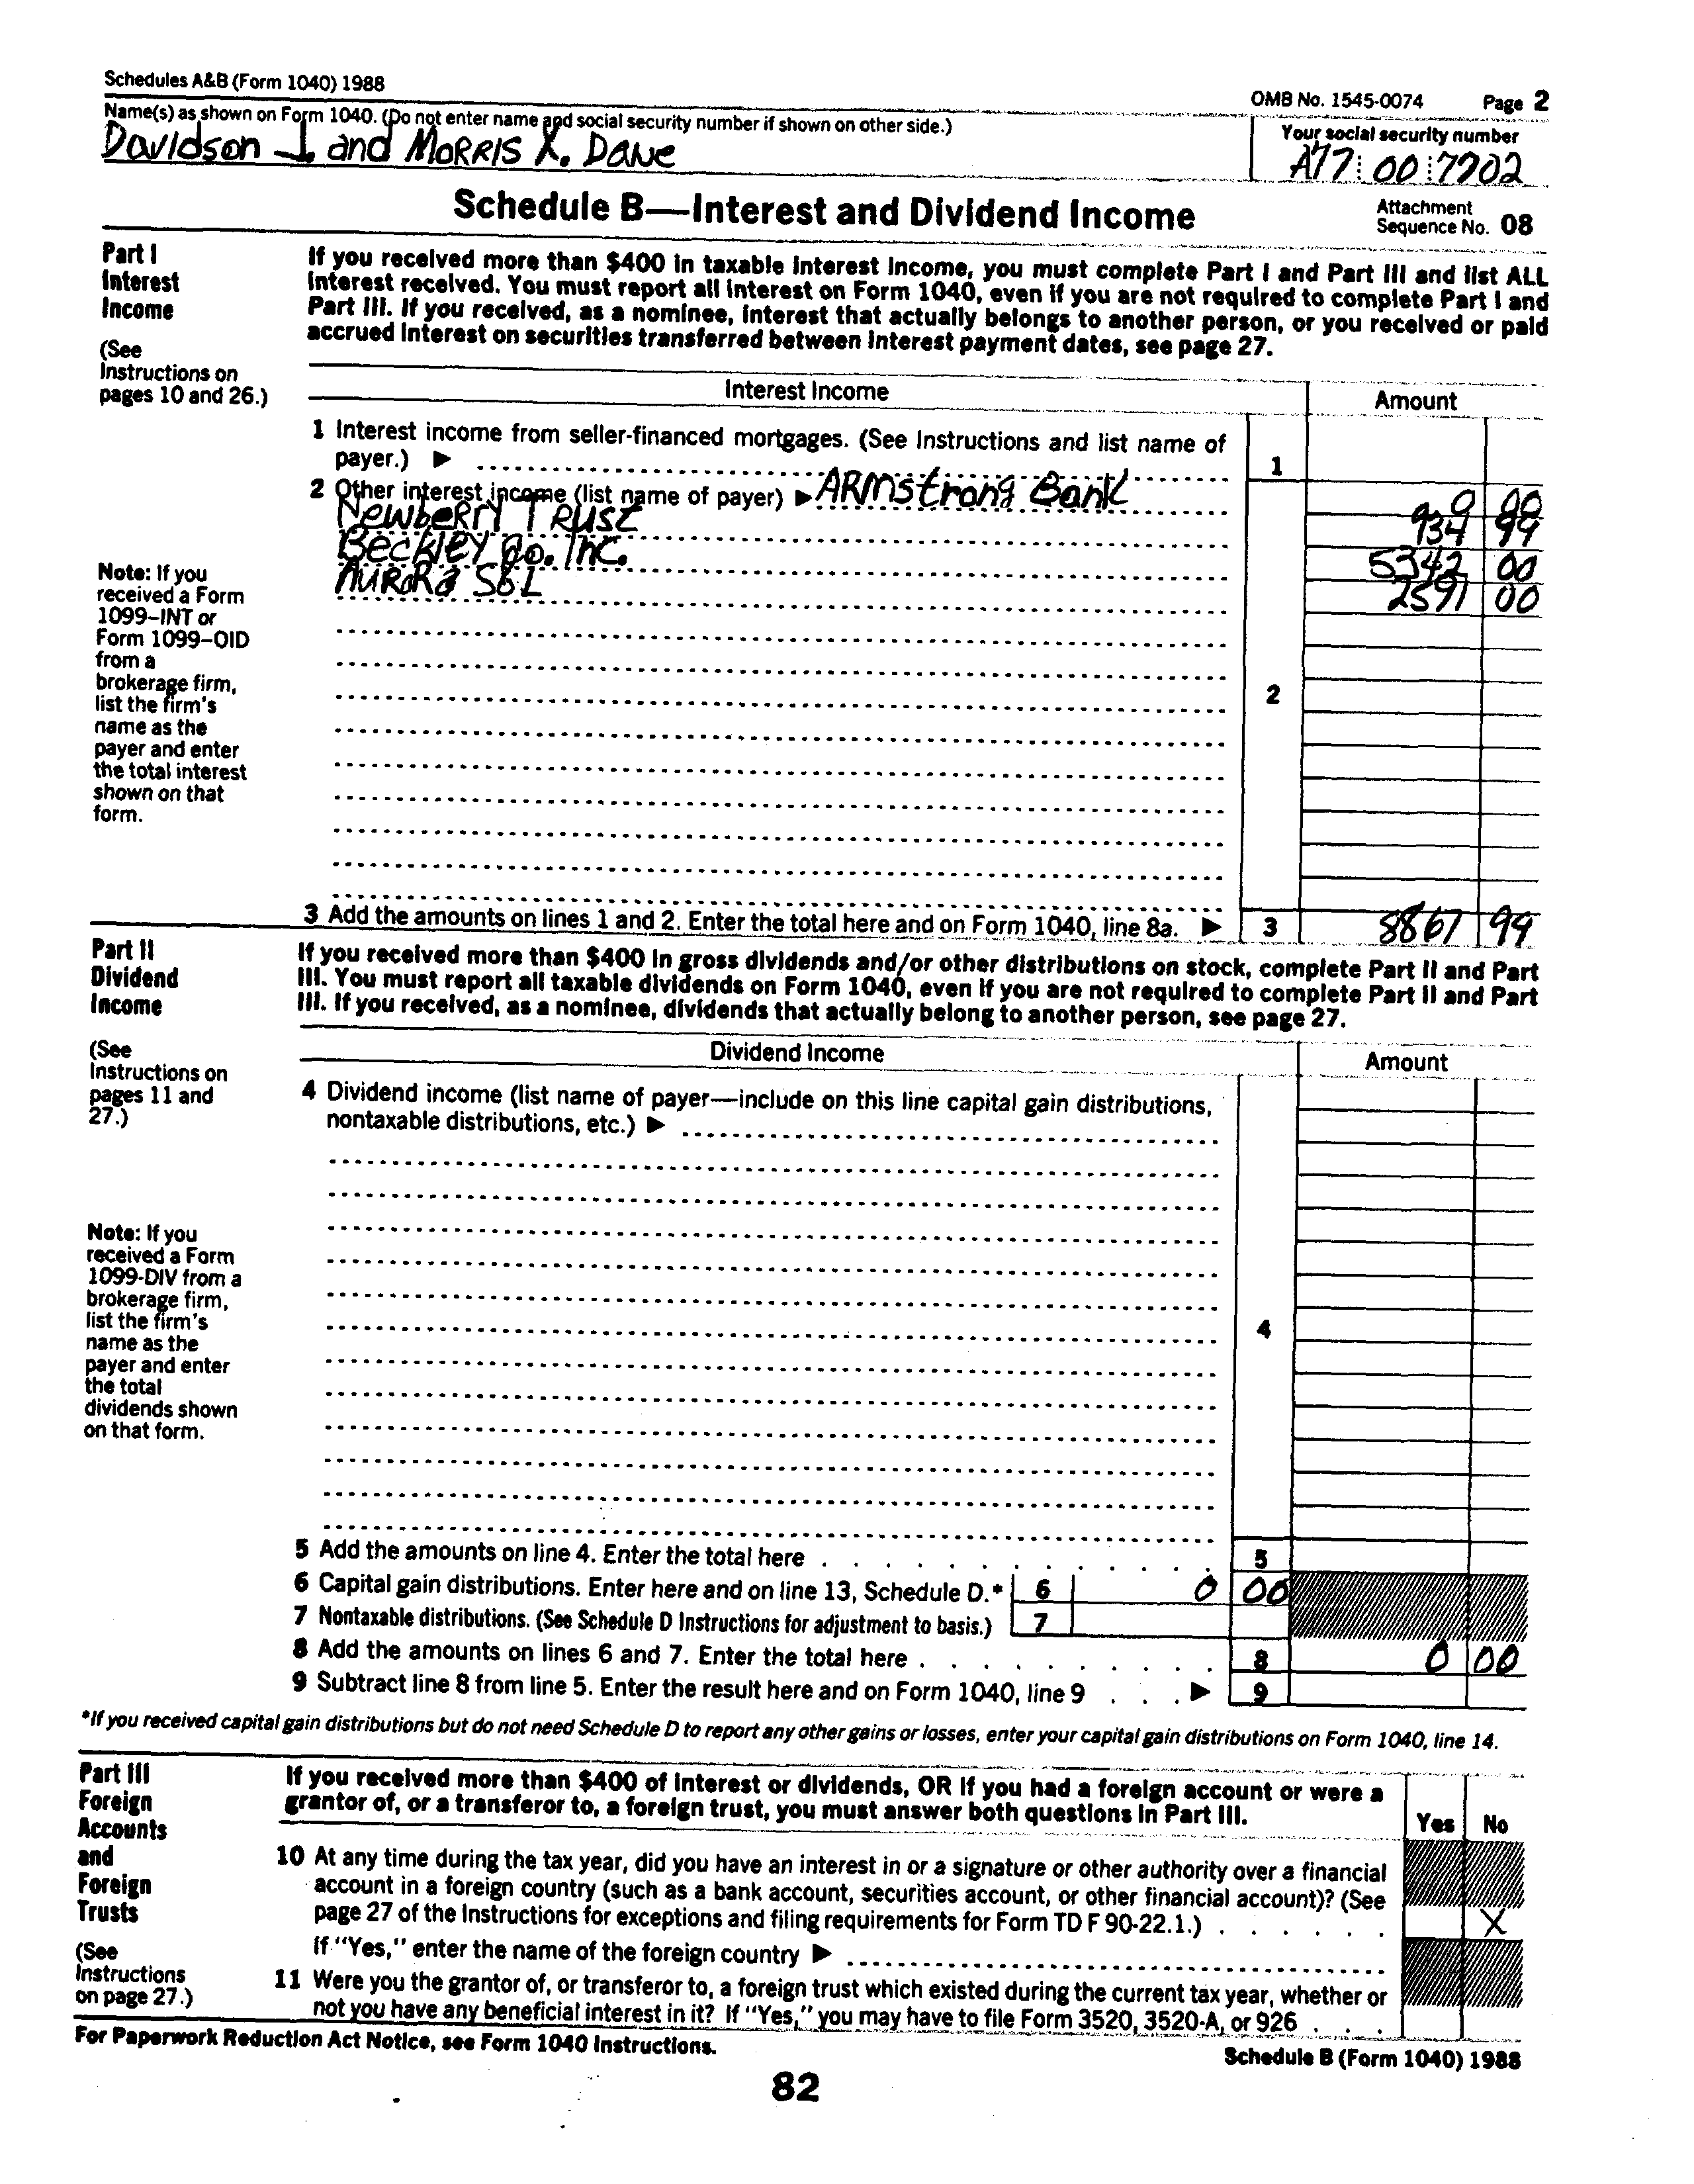 Schedules A&B (Form 1040) 1988
OMB No. 1545-0074 Page 2
Name(s) as shown on Form 1040. (Do not enter name and social security number if shown on other side.)
Your social security number
Davidson J. and MORRIS X. Dane
A77 00 7702
Schedule B—Interest and Dividend Income
Attachment
Sequence No. 08
Part I
Interest
Income
(See
Instructions on
pages 10 and 26.)
If you received more than $400 in taxable interest income, you must complete Part I and Part III and list ALL
interest received. You must report all interest on Form 1040, even if you are not required to complete Part I and
Part III. If you received, as a nominee, interest that actually belongs to another person, or you received or paid
accrued interest on securities transferred between interest payment dates, see page 27.
Interest Income
Amount
1 Interest income from seller-financed mortgages. (See Instructions and list name of
payer.) ▶
1
2 Other interest income (list name of payer) ▶ ARMstrong Bank
0 00
Newberry Trust
934 99
Beckley Co. Inc.
5342 00
Aurora S&L
2591 00
2
Note: If you
received a Form
1099–INT or
Form 1099–OID
from a
brokerage firm,
list the firm's
name as the
payer and enter
the total interest
shown on that
form.
3 Add the amounts on lines 1 and 2. Enter the total here and on Form 1040, line 8a. ▶ 3 8867 99
Part II
Dividend
Income
(See
Instructions on
pages 11 and
27.)
If you received more than $400 in gross dividends and/or other distributions on stock, complete Part II and Part
III. You must report all taxable dividends on Form 1040, even if you are not required to complete Part II and Part
III. If you received, as a nominee, dividends that actually belong to another person, see page 27.
Dividend Income
Amount
4 Dividend income (list name of payer—include on this line capital gain distributions,
nontaxable distributions, etc.) ▶
4
Note: If you
received a Form
1099-DIV from a
brokerage firm,
list the firm's
name as the
payer and enter
the total
dividends shown
on that form.
5 Add the amounts on line 4. Enter the total here . . . 5
6 Capital gain distributions. Enter here and on line 13, Schedule D.* 6 0 00
7 Nontaxable distributions. (See Schedule D Instructions for adjustment to basis.) 7
8 Add the amounts on lines 6 and 7. Enter the total here . . . 8 0 00
9 Subtract line 8 from line 5. Enter the result here and on Form 1040, line 9 . . . ▶ 9
*If you received capital gain distributions but do not need Schedule D to report any other gains or losses, enter your capital gain distributions on Form 1040, line 14.
Part III
Foreign
Accounts
and
Foreign
Trusts
(See
Instructions
on page 27.)
If you received more than $400 of interest or dividends, OR if you had a foreign account or were a
grantor of, or a transferor to, a foreign trust, you must answer both questions in Part III.
Yes No
10 At any time during the tax year, did you have an interest in or a signature or other authority over a financial
account in a foreign country (such as a bank account, securities account, or other financial account)? (See
page 27 of the Instructions for exceptions and filing requirements for Form TD F 90-22.1.) . . . X
If "Yes," enter the name of the foreign country ▶
11 Were you the grantor of, or transferor to, a foreign trust which existed during the current tax year, whether or
not you have any beneficial interest in it? If "Yes," you may have to file Form 3520, 3520-A, or 926 . . .
For Paperwork Reduction Act Notice, see Form 1040 Instructions.
Schedule B (Form 1040) 1988
82